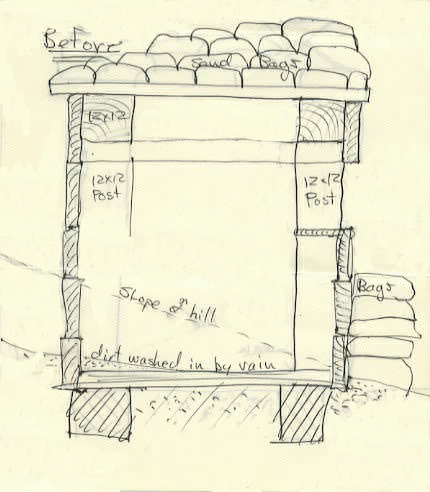 Before
Sand Bags
12x12
12x12
Post
12x12
Post
Bags
Slope of hill
dirt washed in by rain